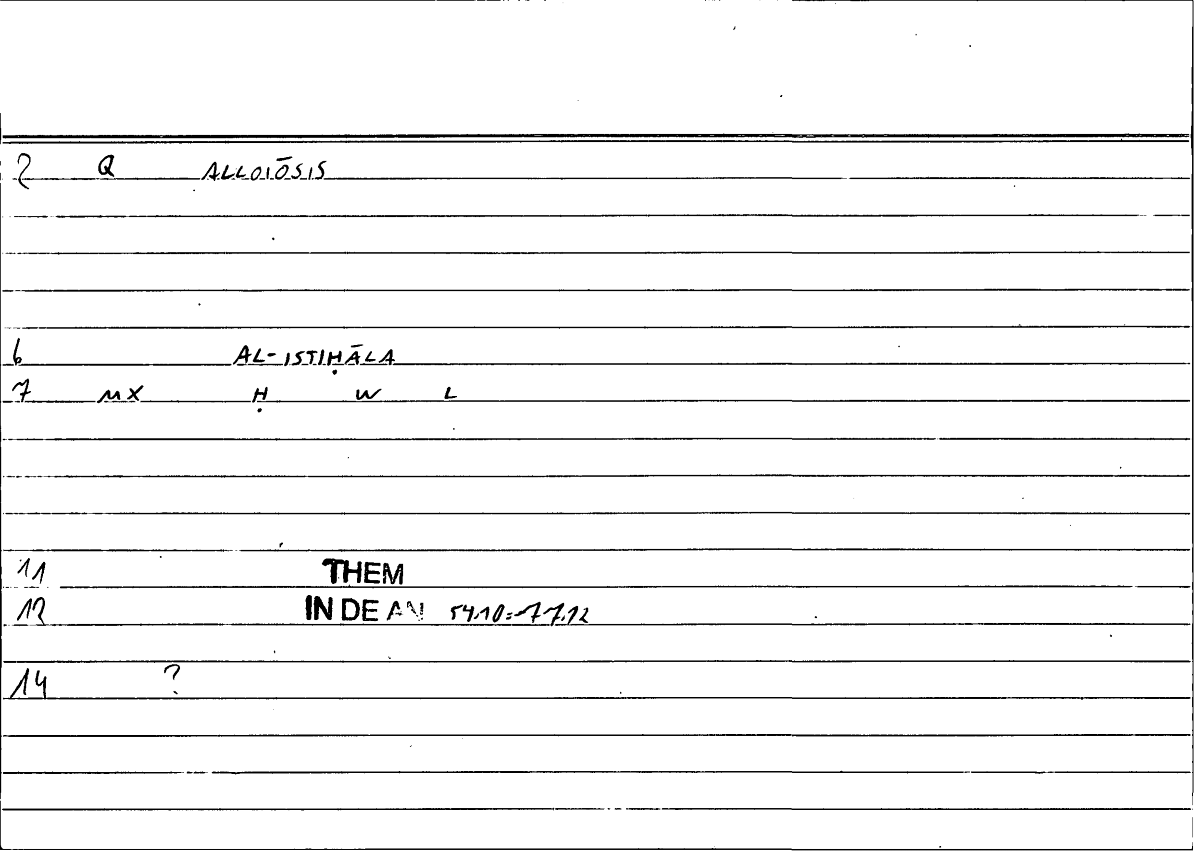 2 Q ALLOIŌSIS
6 AL-ISTIḤĀLA
7 MX Ḥ W L
11 THEM
12 IN DE AN 54.10-77.12
14 ?